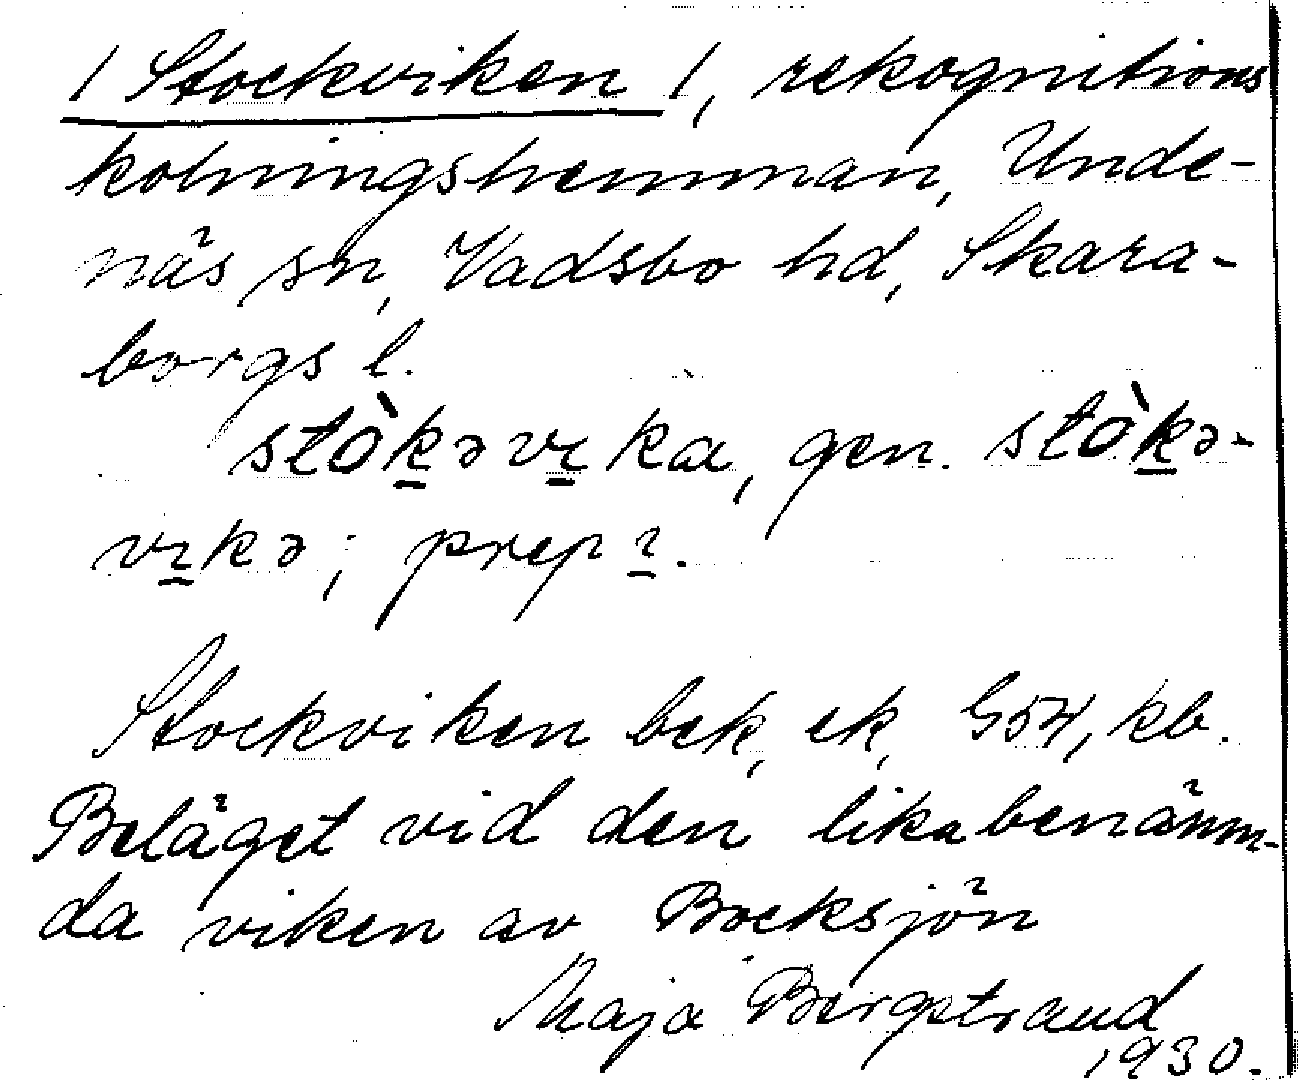 / Stockviken /, rekognitions
kolningshemman, Unde-
näs sn, Vadsbo hd, Skara-
borgs l.
stòkəvıka, gen. stòkə-
vıkə; prep ı.
Stockviken bek, ek, G54, kb.
Beläget vid den likabenämn-
da viken av Bocksjön
Maja Bergstrand
1930.